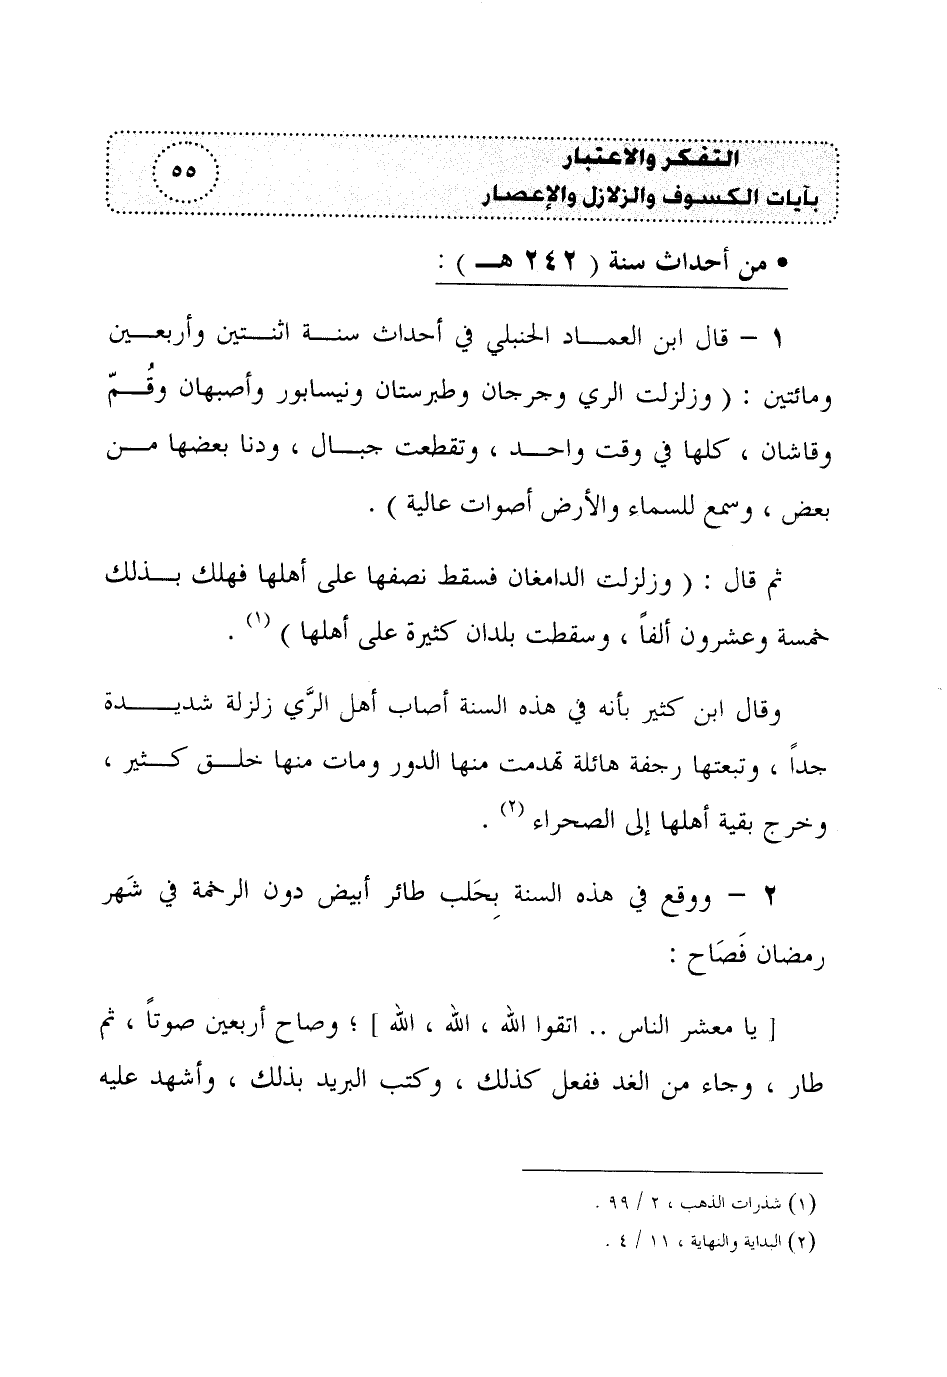 التفكر والاعتبار
بآيات الكسوف والزلازل والإعصار
٥٥
• من أحداث سنة ( ٢٤٢ هـ ) :
١ – قال ابن العماد الحنبلي في أحداث سنة اثنتين وأربعين
ومائتين : ( وزلزلت الري وجرجان وطبرستان ونيسابور وأصبهان وقُمّ
وقاشان ، كلها في وقت واحد ، وتقطعت جبال ، ودنا بعضها من
بعض ، وسمع للسماء والأرض أصوات عالية ) .
ثم قال : ( وزلزلت الدامغان فسقط نصفها على أهلها فهلك بذلك
خمسة وعشرون ألفاً ، وسقطت بلدان كثيرة على أهلها ) (١) .
وقال ابن كثير بأنه في هذه السنة أصاب أهل الرَّي زلزلة شديدة
جداً ، وتبعتها رجفة هائلة تهدمت منها الدور ومات منها خلق كثير ،
وخرج بقية أهلها إلى الصحراء (٢) .
٢ – ووقع في هذه السنة بِحَلب طائر أبيض دون الرخمة في شَهر
رمضان فَصَاح :
[ يا معشر الناس .. اتقوا الله ، الله ، الله ] ؛ وصاح أربعين صوتاً ، ثم
طار ، وجاء من الغد ففعل كذلك ، وكتب البريد بذلك ، وأشهد عليه
(١) شذرات الذهب ، ٢ / ٩٩ .
(٢) البداية والنهاية ، ١١ / ٤ .